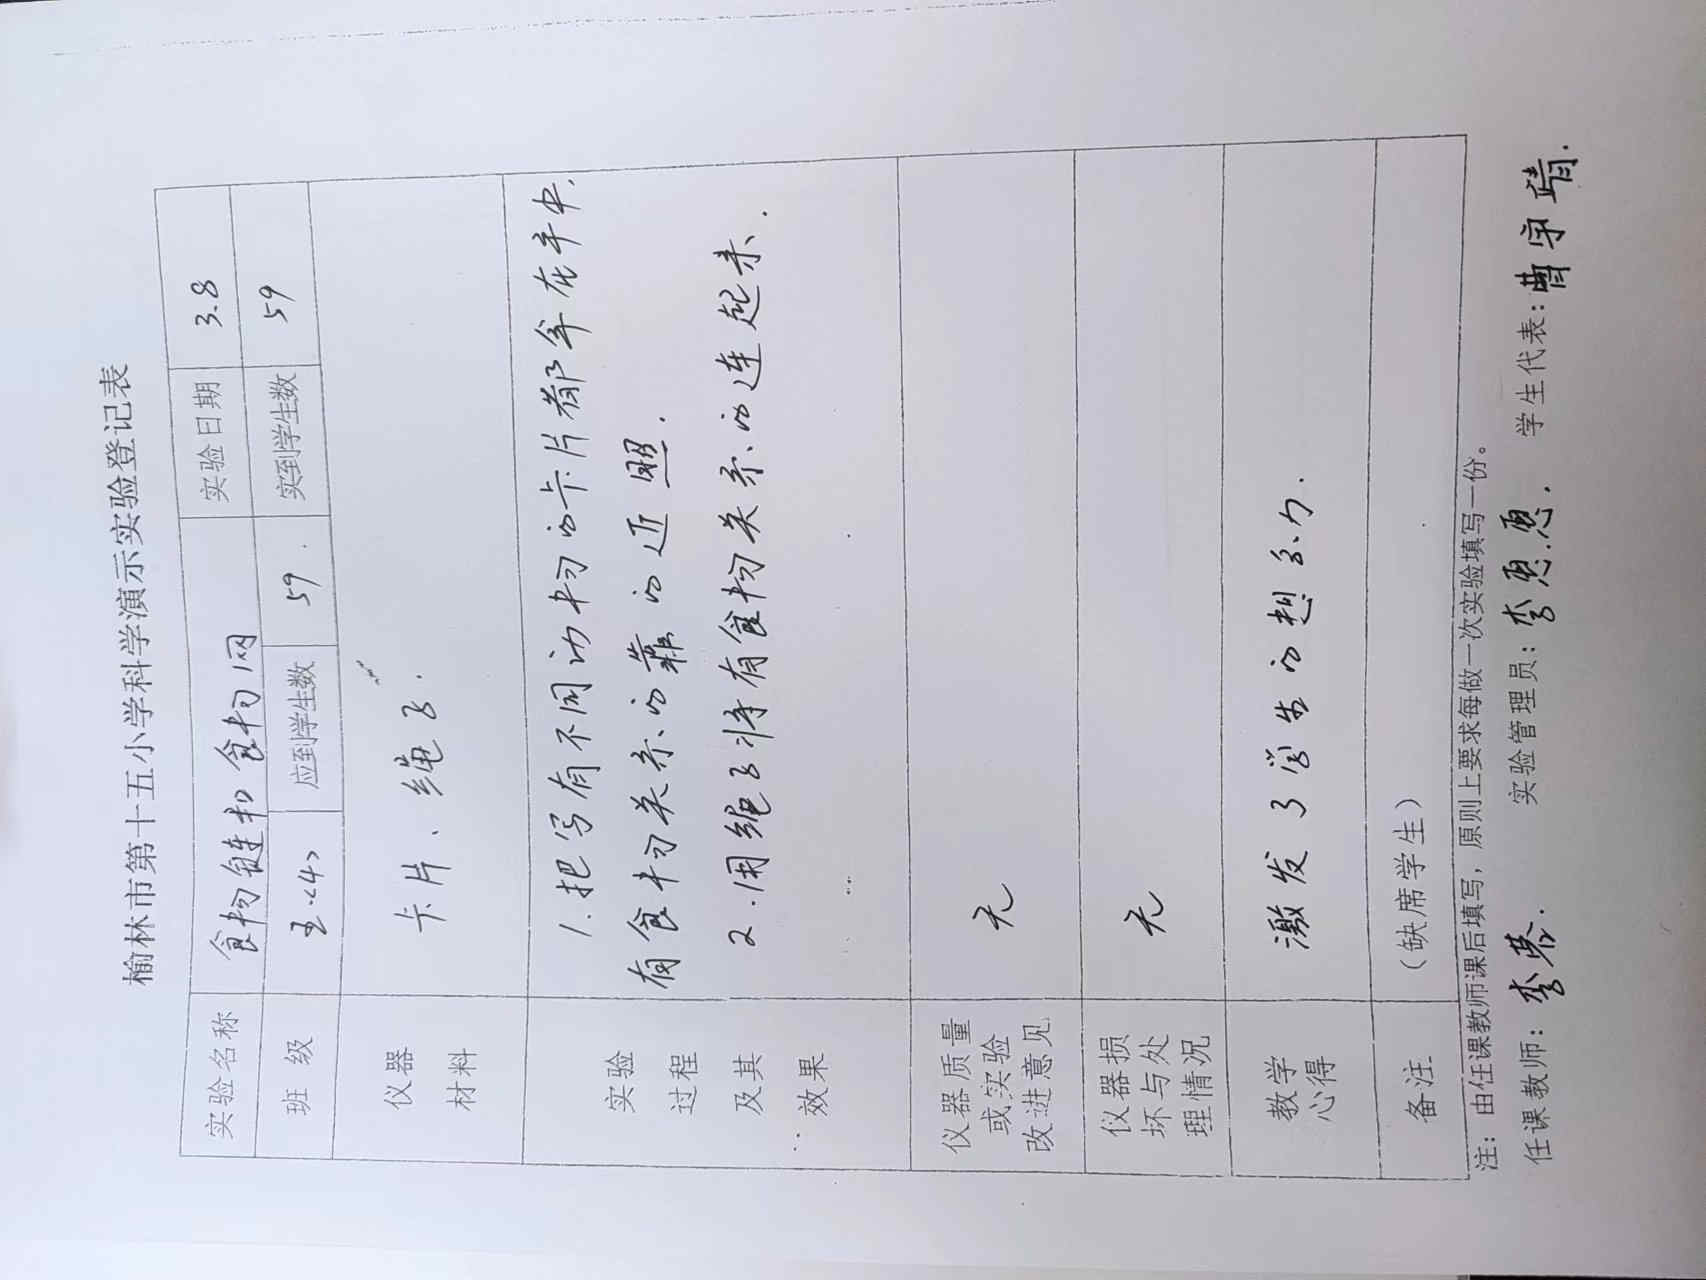 榆林市第十五小学科学演示实验登记表
实验名称 食物链和食物网 实验日期 3.8
班 级 五.<4> 应到学生数 59. 实到学生数 59
仪器
材料
卡片、绳子.
实验
过程
及其
效果
1.把写有不同动物的卡片都拿在手中.
有食物关系的靠的近些.
2.用绳子将有食物关系的连起来.
仪器质量
或实验
改进意见
无
仪器损
坏与处
理情况
无
教学
心得
激发了学生的想象力.
备注 （缺席学生）
注：由任课教师课后填写，原则上要求每做一次实验填写一份。
任课教师：李 实验管理员：李恩恩. 学生代表：曹宇靖.